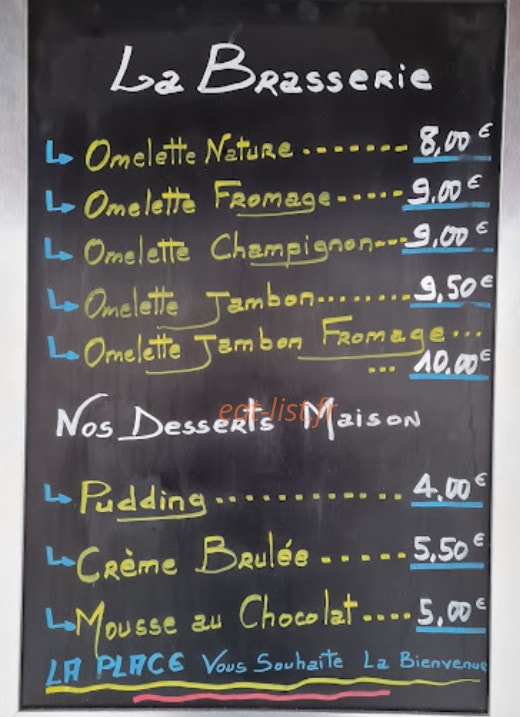 La Brasserie
↳ Omelette Nature ....... 8,00 €
↳ Omelette Fromage ..... 9,00 €
↳ Omelette Champignon ... 9,00 €
↳ Omelette Jambon ........ 9,50 €
↳ Omelette Jambon Fromage ...
... 10,00 €
eat-list.fr
Nos Desserts Maison
↳ Pudding ............ 4,00 €
↳ Crème Brulée ..... 5,50 €
↳ Mousse au Chocolat .... 5,00 €
LA PLACE Vous Souhaite La Bienvenue